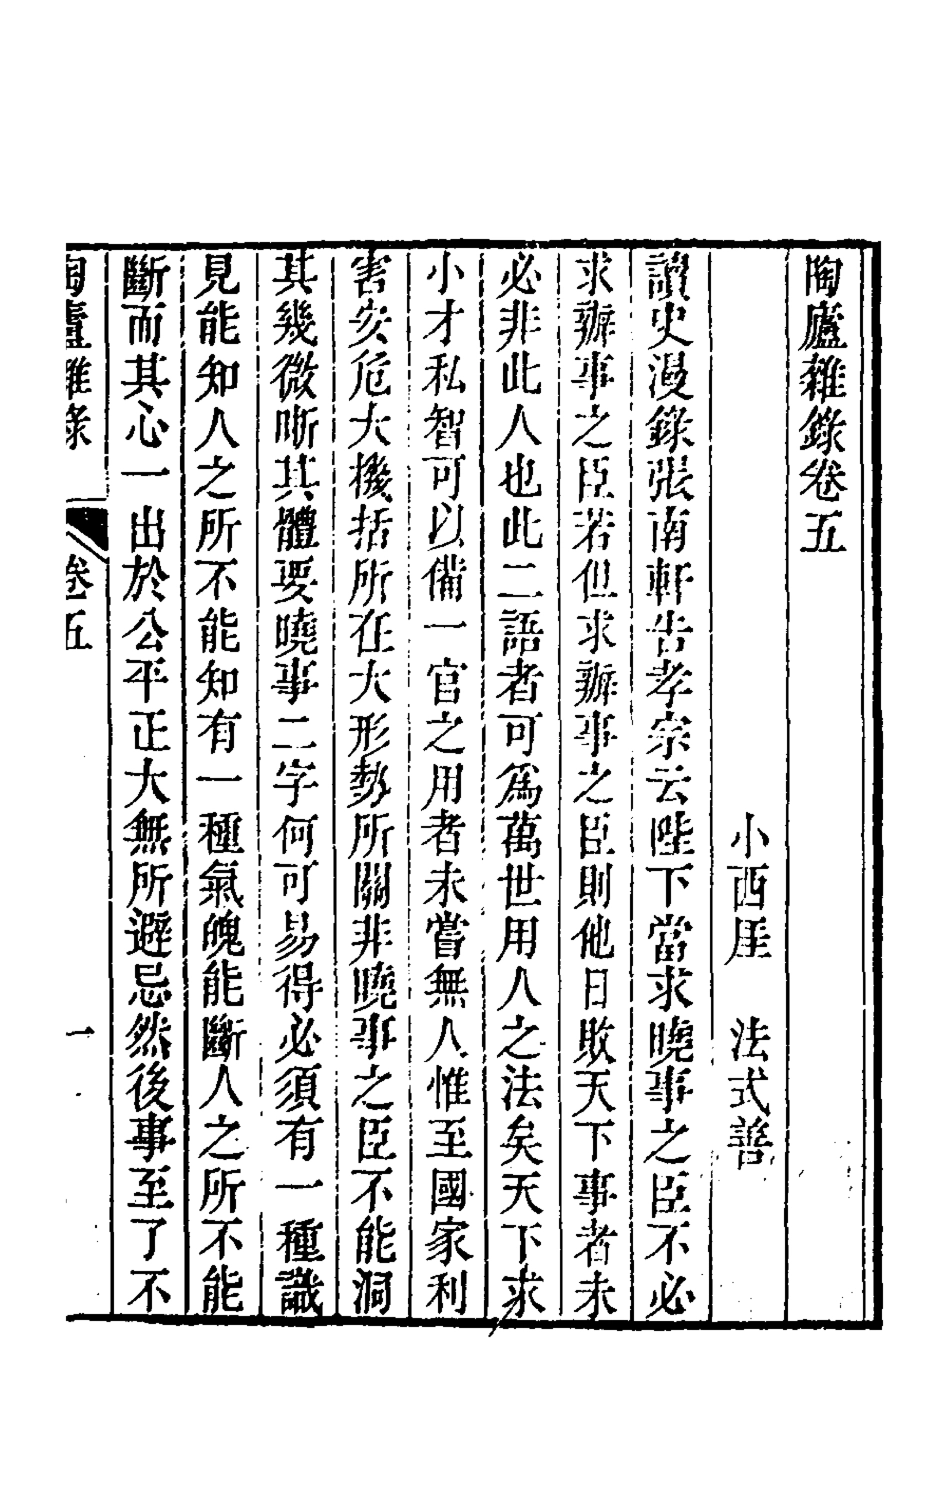 陶廬雜錄卷五
小西厓　法式善
讀史漫錄張南軒告孝宗云陛下當求曉事之臣不必
求辦事之臣若但求辦事之臣則他日敗天下事者未
必非此人也此二語者可為萬世用人之法矣天下求
小才私智可以備一官之用者未嘗無人惟至國家利
害安危大機括所在大形勢所關非曉事之臣不能洞
其幾微晰其體要曉事二字何可易得必須有一種識
見能知人之所不能知有一種氣魄能斷人之所不能
斷而其心一出於公平正大無所避忌然後事至了不
陶廬雜錄　卷五　一